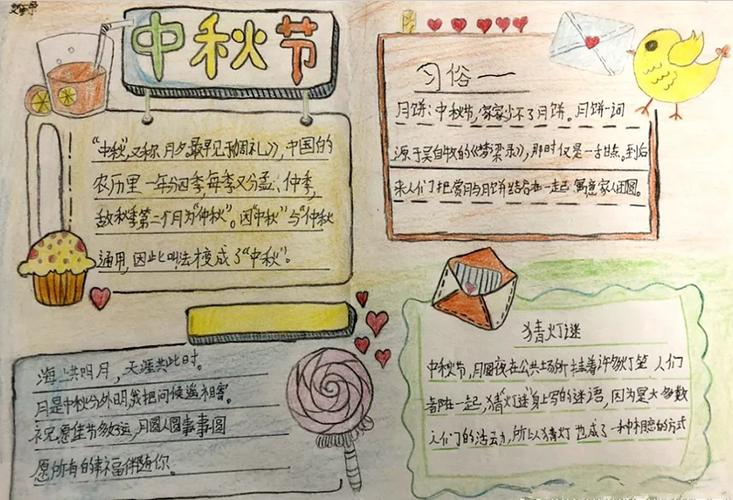 中秋节
"中秋",又称月夕,最早见于《周礼》,中国的
农历里一年分四季每季又分孟、仲、季,
故秋季第二个月为"仲秋"。因"中秋"与"仲秋
通用,因此叫法演变成了"中秋"。
海上共明月,天涯共此时。
月是中秋分外明,我把问候遥相寄。
祝愿佳节多好运,月圆人圆事事圆
愿所有的幸福伴随你。
习俗一
月饼:中秋节,家家少不了月饼。月饼一词
源于吴自牧的《梦梁录》,那时仅是一舌甜点。到后
来人们把赏月与月饼结合在一起,寓意家人团圆。
猜灯谜
中秋节,月圆夜在公共场所挂着许多灯笼 人们
都在一起,猜灯谜身上写的谜语,因为是大多数
人们的活动,所以猜灯 也成了一种相思的方式